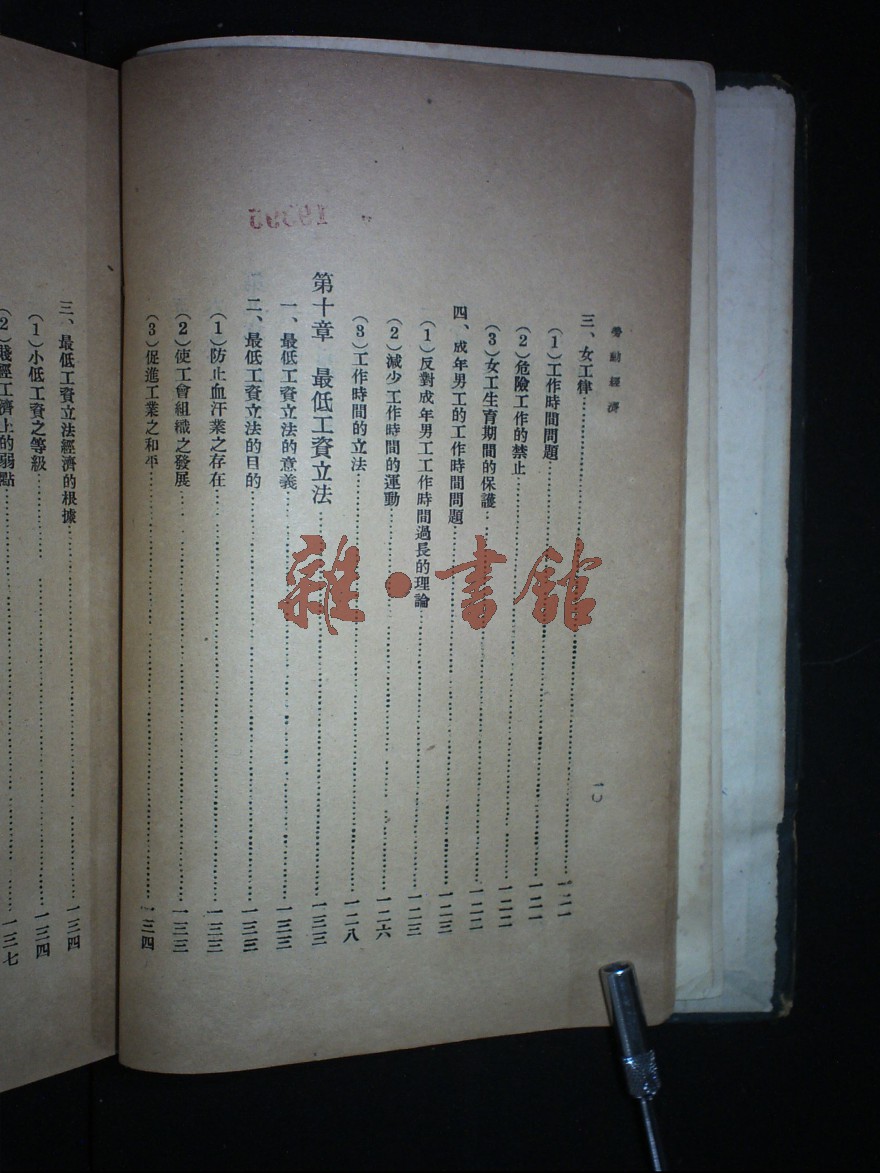 勞動經濟
一〇
三、女工律……一二一
(1)工作時間問題……一二一
(2)危險工作的禁止……一二二
(3)女工生育期間的保護……一二二
四、成年男工的工作時間問題……一二三
(1)反對成年男工工作時間過長的理論……一二三
(2)減少工作時間的運動……一二六
(3)工作時間的立法……一二八
第十章 最低工資立法……一三三
一、最低工資立法的意義……一三三
二、最低工資立法的目的……一三三
(1)防止血汗業之存在……一三三
(2)使工會組織之發展……一三三
(3)促進工業之和平……一三四
三、最低工資立法經濟的根據……一三四
(1)小低工資之等級……一三四
(2)經濟上的弱點……一三七
雜·書館